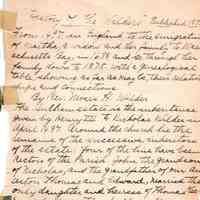 "History of the Wilders" Published 187
From 1497 in England to the emigration
of Martha, a widow and her family to Massa
chusetts Bay, in 1638 and so through her
family down to 1875 With a genealogical
table showing as far as may be, their relation
ships and connections
By Rev. Moses H. Wilder
The Sulham estate was the inheritance
given by Henry VII to Nicholas Wilder in
April 1497 Around the church lie the
remains of the successive inheritors
of the estate. Four of the line have been
Rectors of the Parish. John the grandson
of Nicholas, and the grandfather of our An-
cestor Thomas and Edward, married the
only daughter and heiress of Thomas